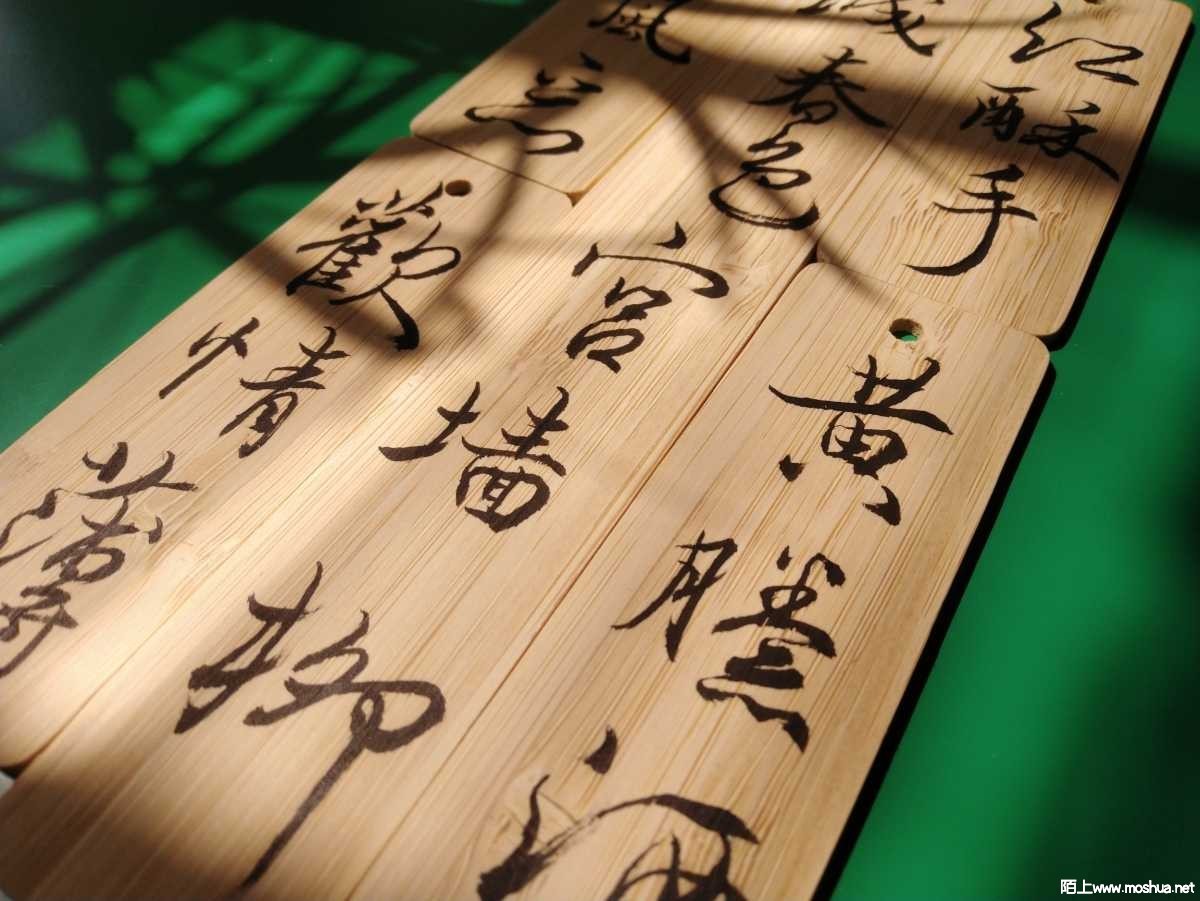 红酥手
黄縢酒
城春色
宫墙柳
風恶
歡情薄
陌上www.moshua.net